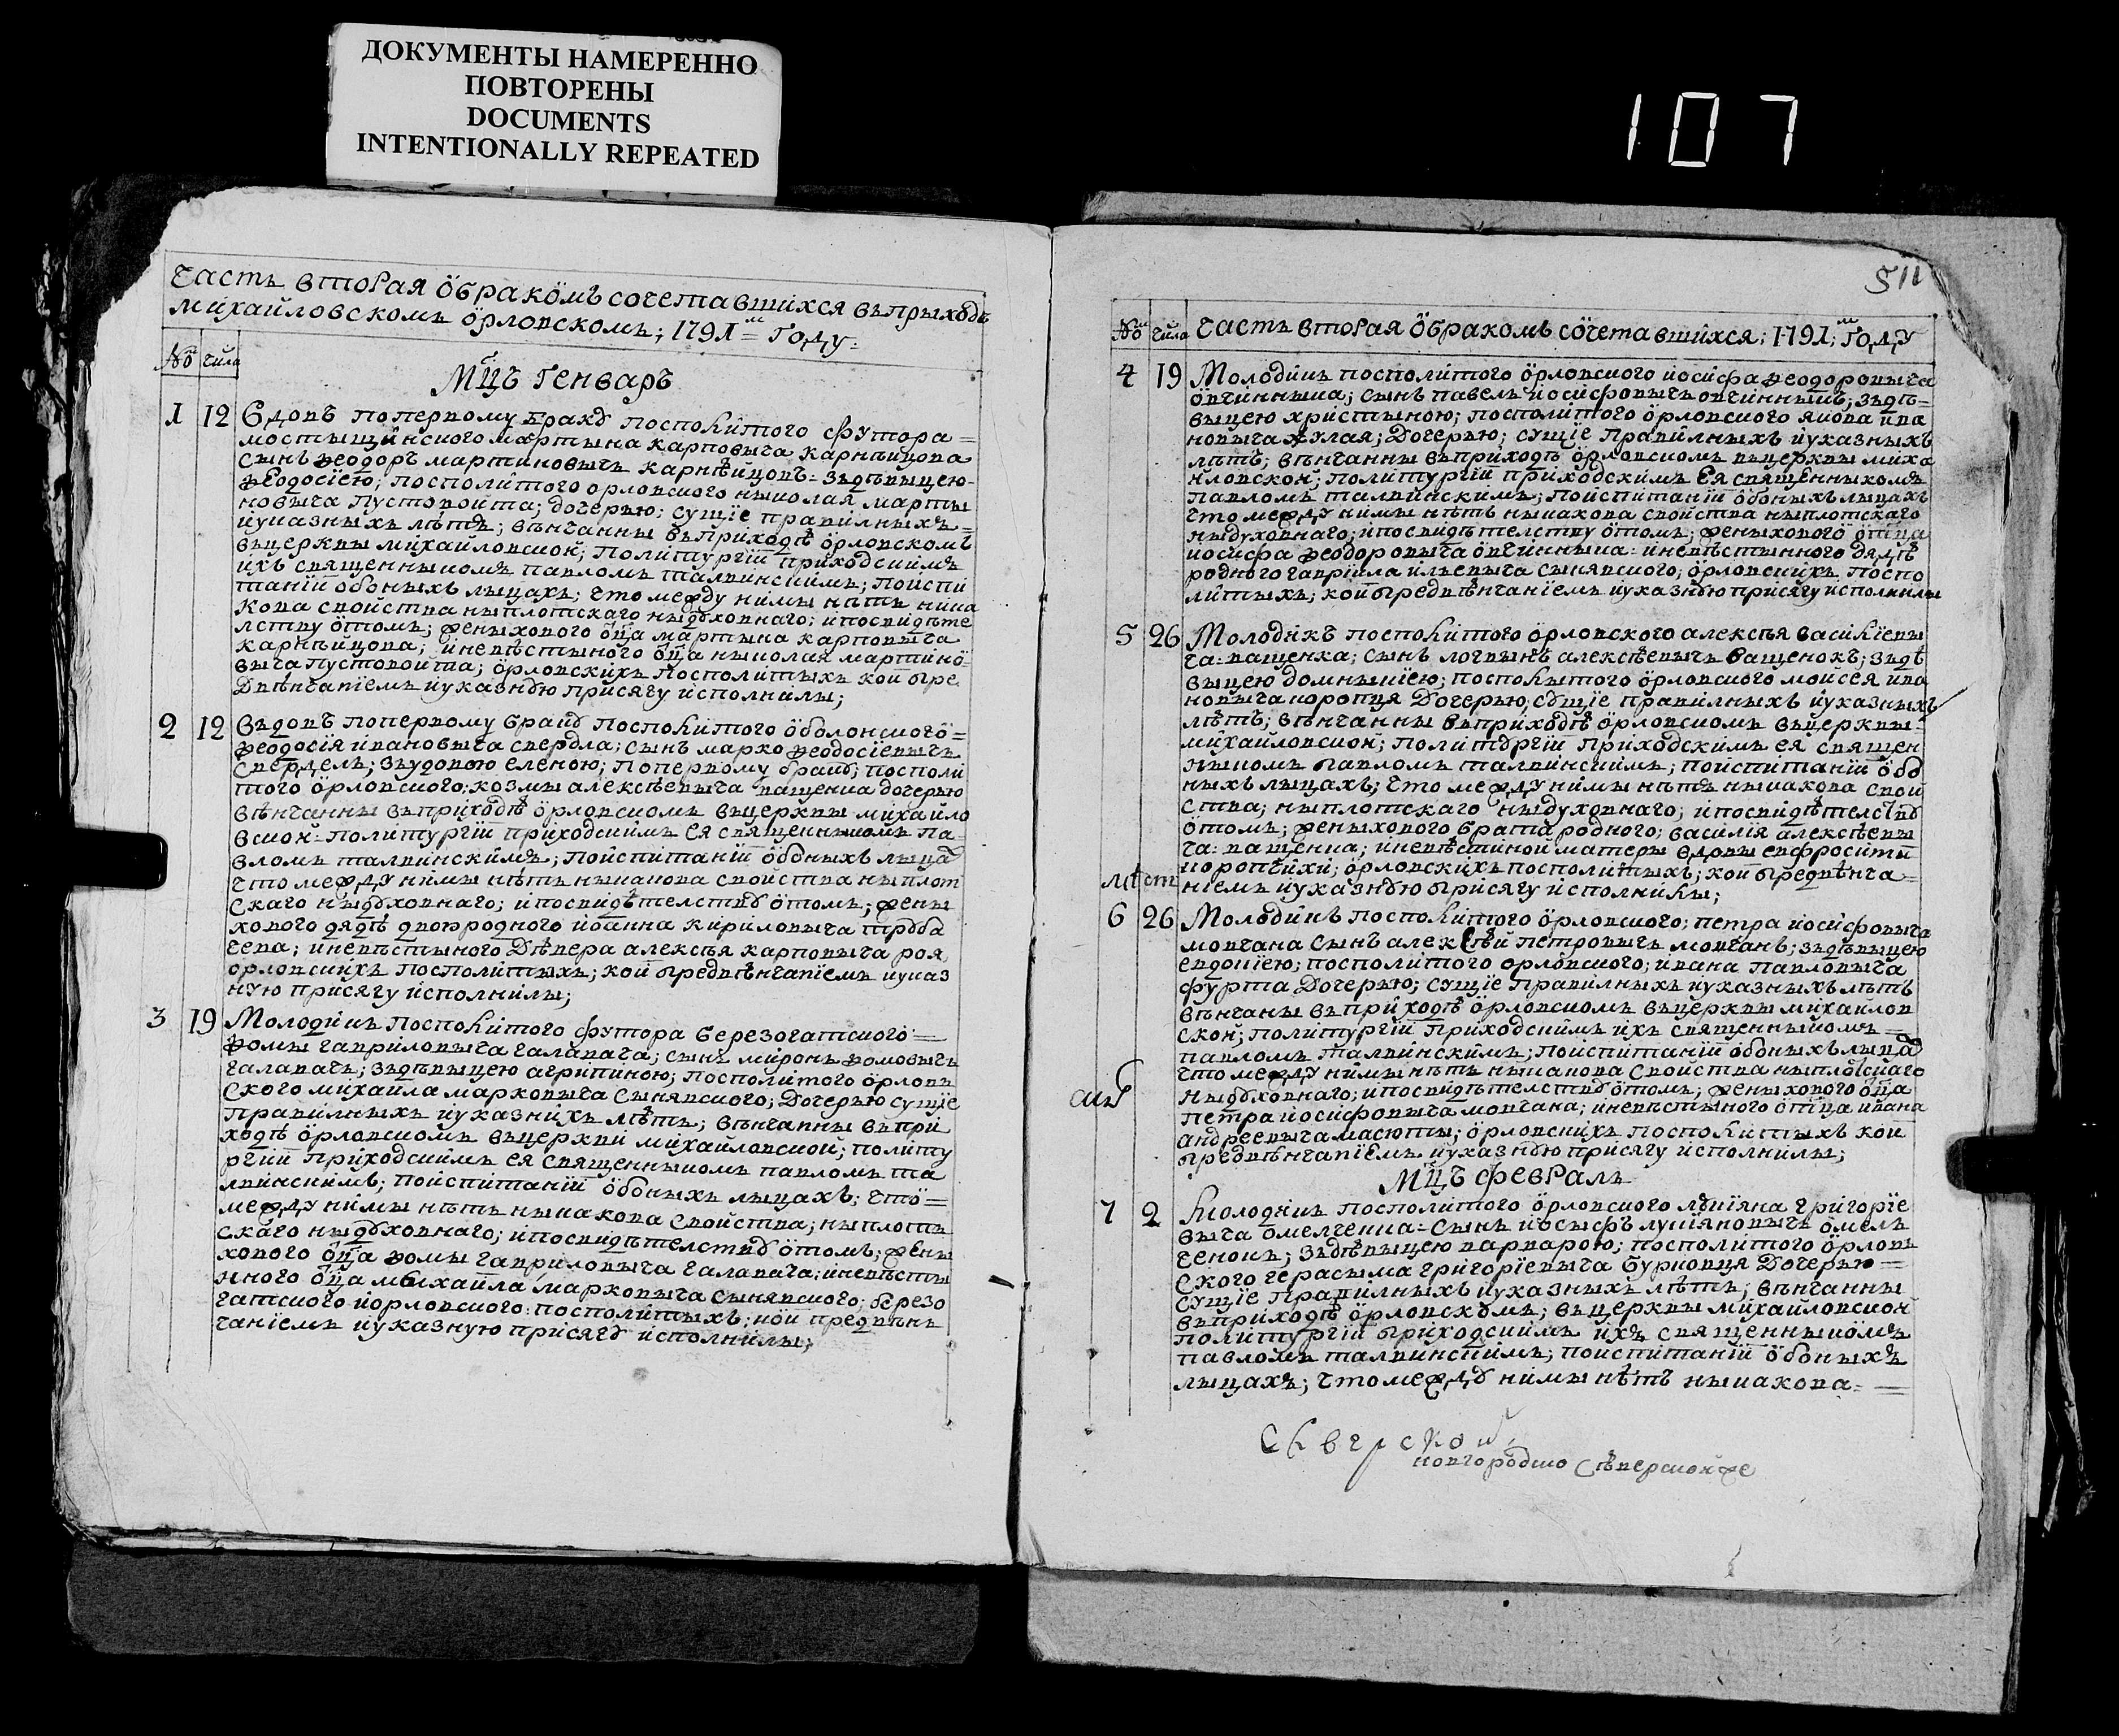 ДОКУМЕНТЫ НАМЕРЕННО
ПОВТОРЕНЫ
DOCUMENTS
INTENTIONALLY REPEATED
107
Часть вторая о бракомъ сочетавшихся въ прыходѣ
михайловскомъ орловскомъ; 1791 м Году
№ числа
Мцъ Генварь
1 12 Вдовъ попервому браку посполитого футора
мостыщинского мартына карповыча карнѣйцова
сынъ ѳеодоръ мартиновычъ карнѣйцовъ: зъдѣвыцею
ѳеодосіею; посполитого орловского ныколая марты
новыча пустовойта; дочерью; сущіе правилныхъ
иуказныхъ лѣтъ; вѣнчанны въприходѣ орловскомъ
въцерквы михайловской; политургіи приходскимъ
ихъ священныкомъ павломъ талвинскимъ; поиспи
таніи обоныхъ лыцахъ; что между нимы нѣтъ ника
кова свойства ныплотскаго ныдуховнаго; ипосвидѣте
лству отомъ; женыхового оца мартына карповыча
карнѣйцова; иневѣстыного оца ныколая мартино
выча пустовойта; орловскихъ посполитыхъ кой пре
двѣнчаніемъ иуказную присягу исполнилы;
2 12 Вьдовъ попервому браку посполитого оболонского
ѳеодосія ивановыча свердла; сынъ марко ѳеодосіевычъ
сверделъ; зъудовою еленою; попервому браку; посполи
того орловского: козмы алексѣевыча ващенка дочерью
вѣнчанны въприходѣ орловскомъ въцерквы михайло
вской: полигургіи приходскимъ ея священныкомъ па
вломъ талвинскимъ; поиспитаніи обоныхъ лыцах
что между нимы нѣтъ ныкакова свойства ныплот
скаго ныдуховнаго; ипосвидѣтелству отомъ; жены
хового дядѣ двоюродного иоанна кириловыча труба
чева; иневѣстыного дѣвера алексѣя карповыча роя
орловскихъ посполитыхъ; кой предвѣнчаніемъ иуказ
ную присягу исполнилы;
3 19 Молодикъ посполитого футора березогатского
ѳомы гавриловыча галагача; сынъ миронъ ѳомовычъ
галагачъ; зъдѣвыцею агрипиною; посполитого орловъ
ского михаила марковыча сынявского; дочерью сущіе
правилныхъ иуказныхъ лѣтъ; вѣнчанны въпри
ходѣ орловскомъ въцеркви михайловской; политу
ргіи приходскимъ ея священныкомъ павломъ та
лвинскимъ; поиспитаніи обоныхъ лыцахъ; что
между нимы нѣтъ ныкакова свойства; ныплотъ
скаго ныдуховнаго; ипосвидѣтелству отомъ; жены
хового оца ѳомы гавриловыча галагача; иневѣсты
нного оца мыхаила марковыча сынявского; березо
гатского иорловского: посполитыхъ; кой предвѣнъ
чаніемъ иуказную присягу исполнилы;
511
№ числа Часть вторая о бракомъ сочетавшихся; 1791; м Году
4 19 Молодикъ посполитого орловского иосифа ѳеодоровыча
овчинныка; сынъ павелъ иосифовычъ овчинныкъ; зъдѣ
выцею христыною; посполитого орловского якова ива
новыча жулая; дочерью; сущіе правилныхъ иуказныхъ
лѣтъ; вѣнчанны въприходѣ орловскомъ въцерквы миха
йловской; полигургіи приходскимъ ея священныкомъ
павломъ талвинскимъ; поиспитаніи обоныхъ лыцахъ
что между нимы нѣтъ ныкакова свойства ныплотскаго
ныдуховнаго; ипосвидѣтелству отомъ; женыхового отца
иосифа ѳеодоровыча овчинныка: иневѣстынного дядѣ
родного гавріила илѣевыча сынявского; орловскихъ поспо
литыхъ; кой предвѣнчаніемъ иуказную присягу исполнилы
5 26 Молодикъ посполитого орловского алексѣя василіевы
ча: ващенка; сынъ логвынъ алексѣевычъ ващенокъ; зъдѣ
выцею домныкіею; посполытого орловского моисея ива
новыча коропця дочерью; сущіе правилныхъ иуказныхъ
лѣтъ; вѣнчанны въприходѣ орловскомъ въцерквы
михайловской; полигургіи приходскимъ ея священ
ныкомъ павломъ талвинскимъ; поиспитаніи обо
ныхъ лыцахъ; что между нимы нѣтъ ныкакова свой
ства; ныплотскаго ныдуховнаго; ипосвидѣтелству
отомъ; женыхового брата родного; василія алексѣевы
ча: ващенка; иневѣстиной матеры вдовы евфросиніи
коропчихи; орловскихъ посполитыхъ; кой предвѣнча
ніемъ иуказную присягу исполнилы;
6 26 Молодикъ посполитого орловского; петра иосифовыча
мовчана сынъ алексѣй петровычъ мовчанъ; зъдѣвыцею
евдокіею; посполитого орловского; ивана павловыча
фурта дочерью; сущіе правилныхъ иуказныхъ лѣтъ
вѣнчаны въприходѣ орловскомъ въцерквы михайлов
ской; полигургіи приходскимъ ихъ священныкомъ
павломъ талвинскимъ; поиспитаніи обоныхъ лыцах
что между нимы нѣтъ ныкакова свойства ныплотскаго
ныдуховнаго; ипосвидѣтелству отомъ; женыхового оца
петра иосифовыча мовчана; иневѣстыного отца ивана
андреевыча масюты; орловскихъ посполитыхъ кой
предвѣнчаніемъ иуказную присягу исполнилы;
Мцъ февраль
7 2 Молодикъ посполитого орловского лукіяна григоріе
выча омелченка: сынъ иосыфъ лукіяновычъ омель
ченокъ; зъдѣвыцею варварою; посполитого орловъ
ского герасыма григоріевыча бурковця дочерью
сущіе правилныхъ иуказныхъ лѣтъ; вѣнчанны
въприходѣ орловскомъ; въцерквы михайловской
полигургіи приходскимъ ихъ священныкомъ
павломъ талвинскимъ; поиспитаніи обоныхъ
лыцахъ; что между нимы нѣтъ ныкакова
новгородско сѣверской же